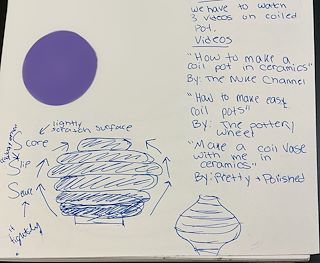 we have to watch
3 videos on coiled
pot.
Videos
"How to make a
coil pot in ceramics"
By: The Nuke Channel
"How to make easy
coil pots"
By: The pottery
wheel
"Make a coil vase
with me in
ceramics"
By: Pretty + Polished
lightly
scratch surface
Score
Slip
Sew
"tightly"